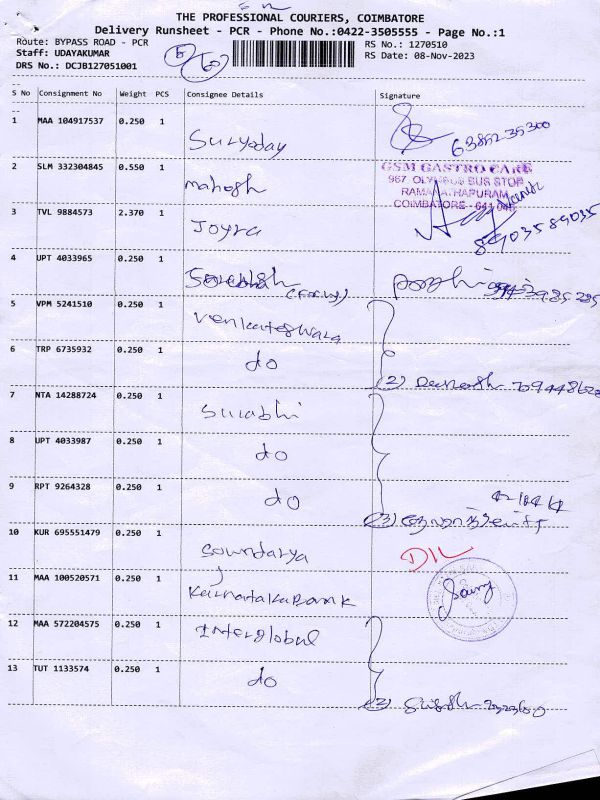 THE PROFESSIONAL COURIERS, COIMBATORE
Delivery Runsheet - PCR - Phone No.:0422-3505555 - Page No.:1
Route: BYPASS ROAD - PCR
RS No.: 1270510
Staff: UDAYAKUMAR
RS Date: 08-Nov-2023
DRS No.: DCJB127051001
S No Consignment No Weight PCS Consignee Details Signature
1 MAA 104917537 0.250 1 Suryoday
2 SLM 332304845 0.550 1 mahesh
GSM GASTRO CARE
967 OLYMPUS BUS STOP
RAMANATHAPURAM
COIMBATORE - 641 045
3 TVL 9884573 2.370 1 Joyra 8903589035
4 UPT 4033965 0.250 1
5 VPM 5241510 0.250 1 Venkateswara
6 TRP 6735932 0.250 1 do (2)
7 NTA 14288724 0.250 1 Surabhi
8 UPT 4033987 0.250 1 do
9 RPT 9264328 0.250 1 do (3)
10 KUR 695551479 0.250 1 Soundarya
11 MAA 100520571 0.250 1 Karnataka Bank
12 MAA 572204575 0.250 1 Interglobal
13 TUT 1133574 0.250 1 do